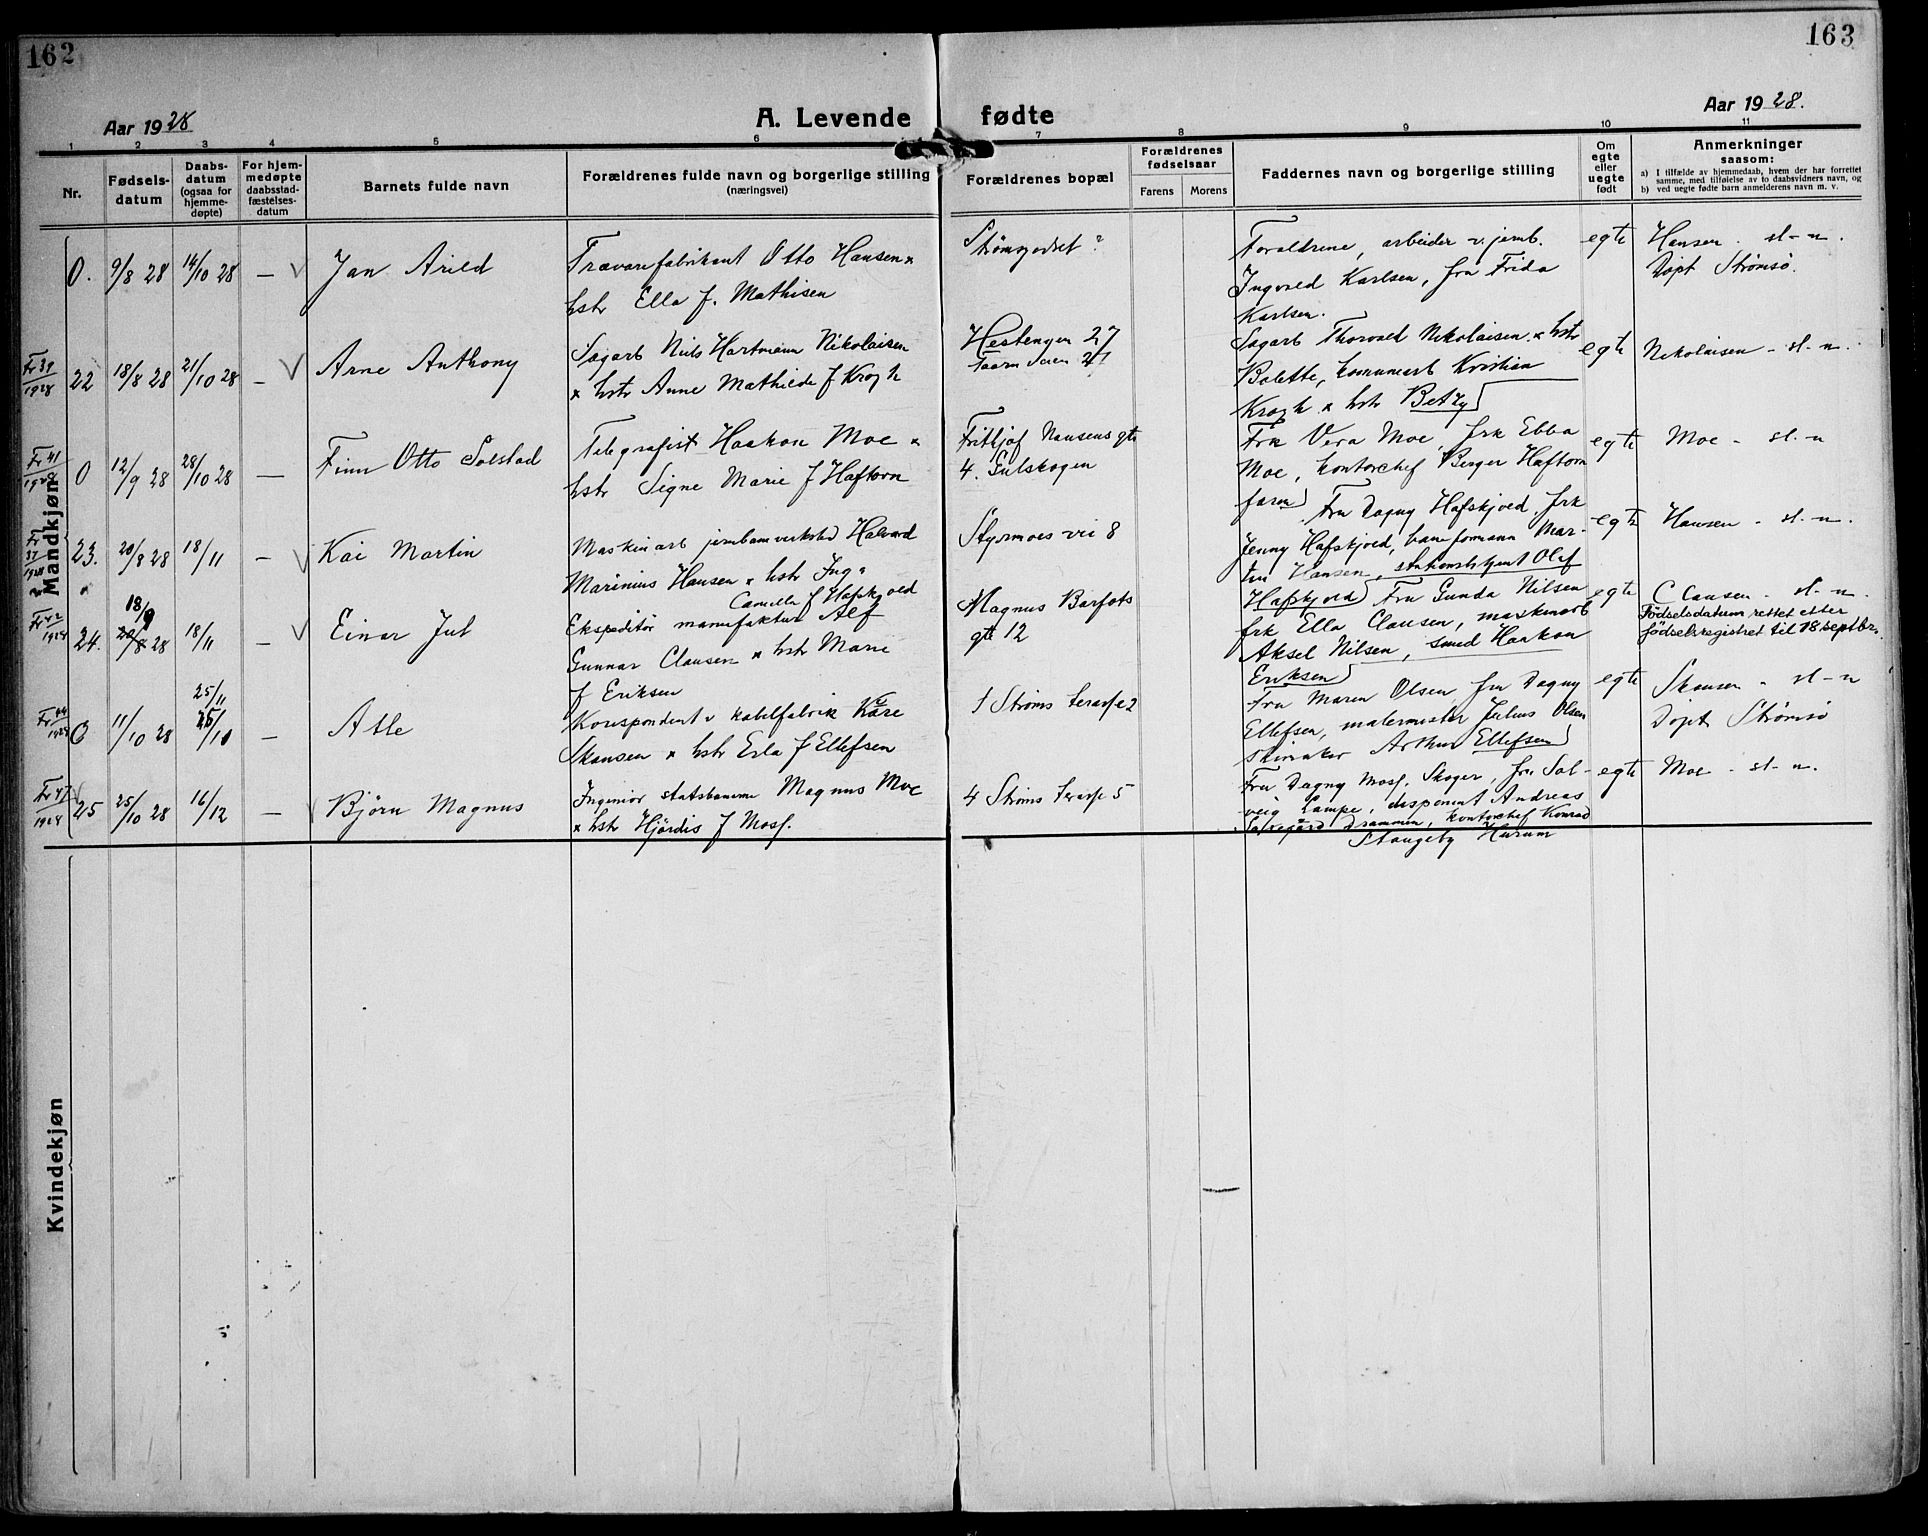 162
163
Aar 1928
A. Levende fødte
Aar 1928.
1 2 3 4 5 6 7 8 9 10 11
Nr.
Fødsels-
datum
Daabs-
datum
(ogsaa for
hjemme-
døpte)
For hjem-
medøpte
daabsstad-
fæstelses-
datum
Barnets fulde navn
Forældrenes fulde navn og borgerlige stilling
(næringsvei)
Forældrenes bopæl
Forældrenes
fødselsaar
Farens
Morens
Faddernes navn og borgerlige stilling
Om
egte
eller
uegte
født
Anmerkninger
saasom:
a) I tilfælde av hjemmedaab, hvem der har forrettet
samme, med tilføielse av to daabsvidners navn, og
b) ved uegte fødte barn anmelderens navn m. v.
Mandkjøn
0. 9/8 28 14/10 28 — Jan Arild
Trævarefabrikant Otto Hansen x
hstr Ella f. Mathisen
Strømsgodset ?
Foraldrene, arbeider v. jernb.
Ingvald Karlsen, fru Frida
Karlsen.
egte
Hansen. st-n.
Døpt Strømsø.
Fr 39
1928
22 18/8 28 21/10 28 — Arne Anthony
Sagarb Niels Hartmann Nikolaisen
x hstr Anne Mathilde f Krogh
Hestengen 27
Sagarb Thorvald Nikolaisen x hstr
Bolette, komunearb Kristian
Krogh x hstr Betzy
egte
Nikolaisen - st-n.
Fr 41
1928
0 12/9 28 28/10 28 — Finn Otto Solstad
Telegrafist Haakon Moe x
hstr Signe Marie f Haftorn
Fritjof Nansens gte
4. Gulskogen
Frk Vera Moe, frk Ebba
Moe, kontorchef Berger Haftorn
faren
egte
Moe - st-n
Fr
37
1928
23. 20/8 28 18/11 — Kai Martin
Maskinarb jernbaneverksted Halvard
Marinius Hansen x hstr Ing-
Camilla f Hafskjold
Styrmoes vei 8
Fru Dagny Hafskjold, frk
Jenny Hafskjold, baneformann Mar-
tin Hansen, stationsbetjent Olaf
Hafskjold
egte
Hansen - st-n.
Fr 42
1928
24. 18/9
20/8 28 18/11 — Einar Jul
Ekspeditør manufaktur Alf
Gunnar Clausen x hstr Marie
f Eriksen
Magnus Barfots
gte 12
Fru Gunda Nilsen
frk Ella Clausen, maskinarb
Aksel Nilsen, smed Haakon
Eriksen
egte
Clausen - st-n.
Fødselsdatum rettet etter
fødselsregistret til 18 septbr.
Fr 44
1928
0 11/10 28 25/11
25/10 — Atle
Korrespondent v kabelfabrik Kåre
Skansen x hstr Erla f Ellefsen
1 Strøms terasse 2
Fru Maren Olsen fru Dagny
Ellefsen, malermester Julius Olsen
skomaker Arthur Ellefsen
egte
Skansen - st-n
Døpt Strømsø
Fr 47
1928
25 25/10 28 16/12 — Björn Magnus
Ingeniør statsbanerne Magnus Moe
x hstr Hjördis f Mosf.
4 Strøms terasse 5
Fru Dagny Mosf. Skoger, fru Sol-
veig Lampe, disponent Andreas
Drammen, kontorchef Konrad
Stangeby Hurum
egte
Moe - st-n.
Kvindekjøn